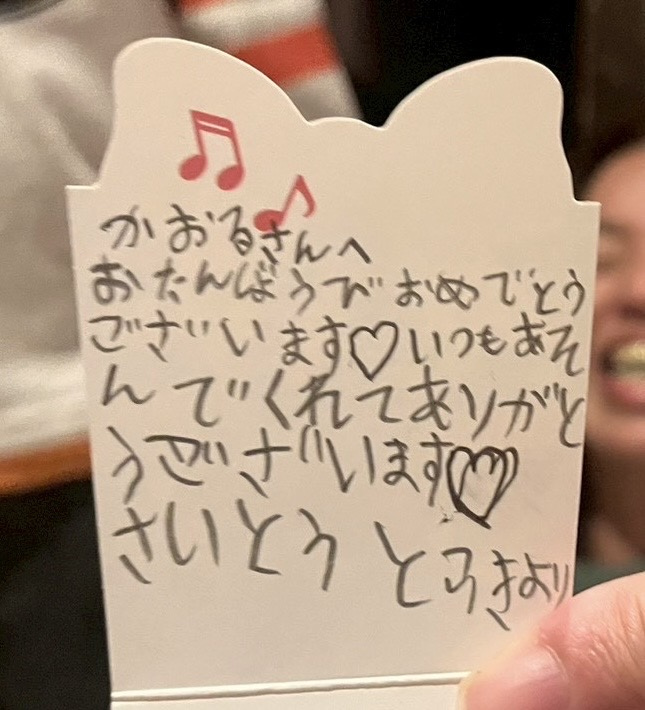 かおるさんへ
おたんばうび おめでとう
ございます♡いつもあそ
んでくれてありがと
うございます♡
さいとう とうきより